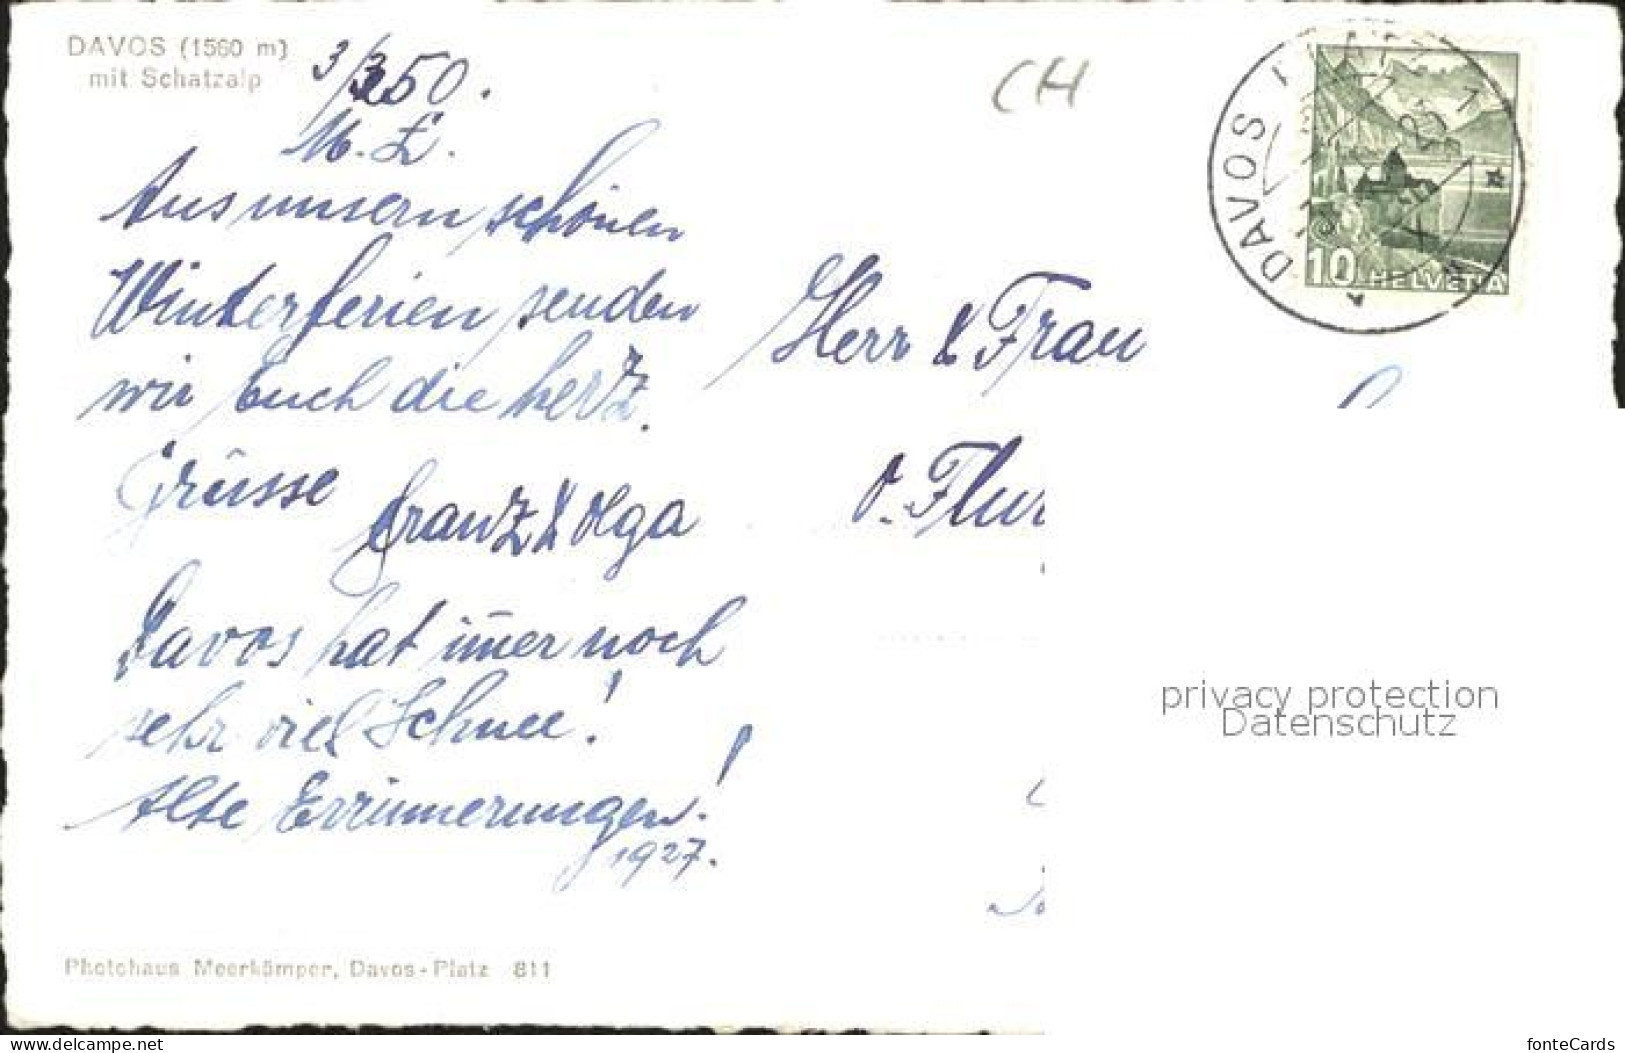 DAVOS (1560 m)
mit Schatzalp
3/3 50.
M. L.
Aus unsern schönen
Winterferien senden
wir Euch die herz.
Grüsse
Franz & Olga
Davos hat im̅er noch
sehr viel Schnee!
Alte Errinnerungen!
1927.
Photohaus Meerkämper, Davos-Platz 811
CH
DAVOS
10 HELVETIA
Herr & Frau
O. Flur
privacy protection
Datenschutz
www.delcampe.net
fonteCards